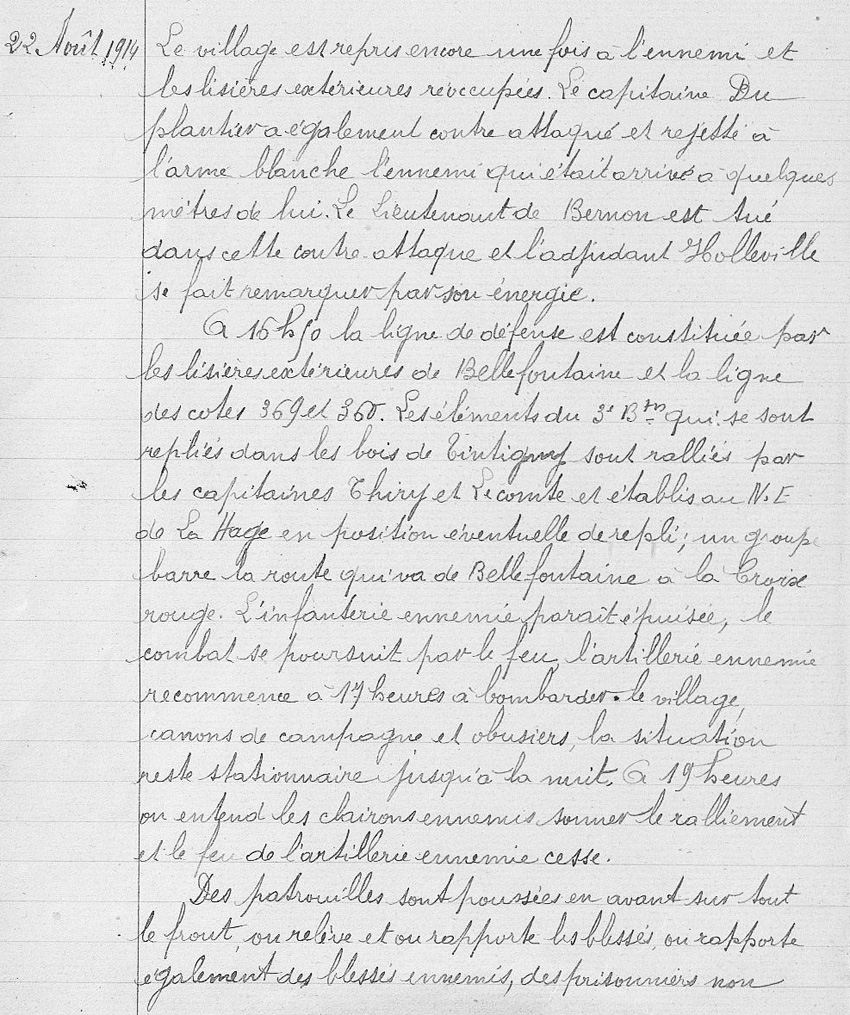 22 Août 1914 Le village est repris encore une fois à l'ennemi et
les lisières extérieures réoccupées. Le capitaine Du
plantier a également contre attaqué et rejetté à
l'arme blanche l'ennemi qui était arrivé à quelques
mètres de lui. Le Lieutenant de Bernon est tué
dans cette contre-attaque et l'adjudant Holleville
se fait remarquer par son énergie.
A 16 h 50 la ligne de défense est constituée par
les lisières extérieures de Bellefontaine et la ligne
des cotes 369 et 360. Les éléments du 3e Bton qui se sont
repliés dans les bois de Tintigny sont ralliés par
les capitaines Thiry et Lecomte et établis au N.E
de La Hage en position éventuelle de repli; un groupe
barre la route qui va de Bellefontaine à la Croix
rouge. L'infanterie ennemie parait épuisée, le
combat se poursuit par le feu, l'artillerie ennemie
recommence à 17 heures à bombarder le village,
canons de campagne et obusiers, la situation
reste stationnaire jusqu'à la nuit. A 19 heures
on entend les clairons ennemis sonner le ralliement
et le feu de l'artillerie ennemie cesse.
Des patrouilles sont poussées en avant sur tout
le front, on relève et on rapporte les blessés, on rapporte
également des blessés ennemis, des prisonniers non